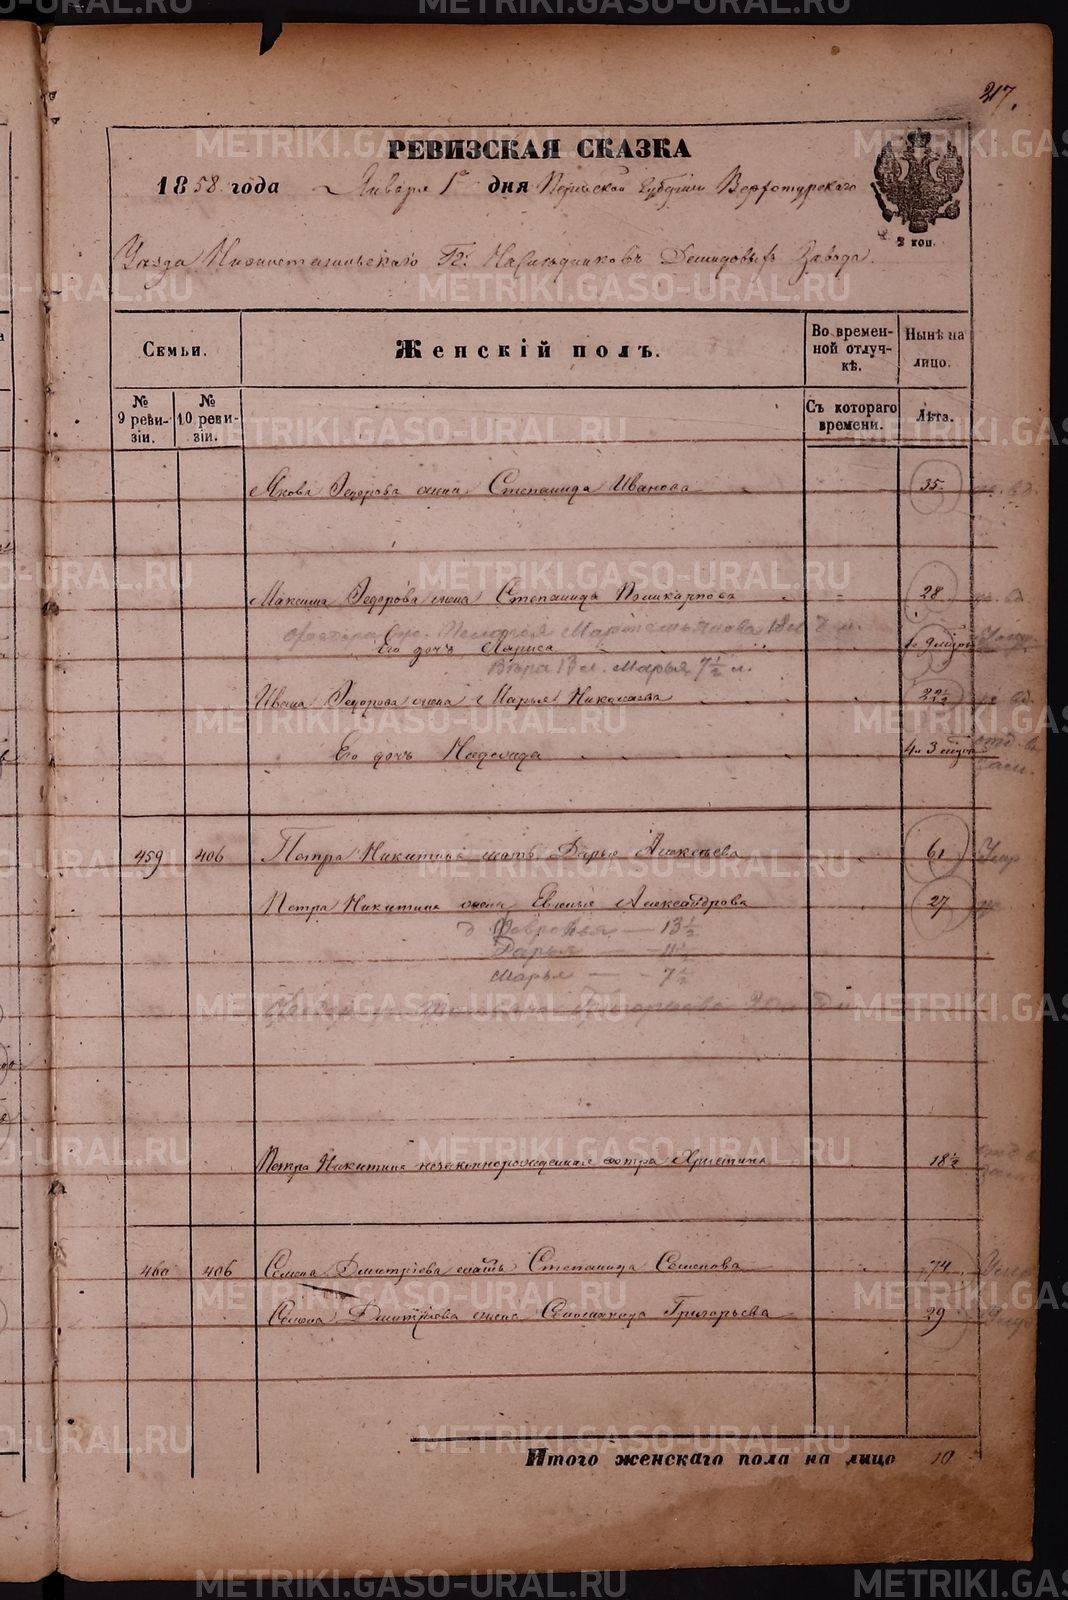 217.
РЕВИЗСКАЯ СКАЗКА
1858 года Января 1го дня Пермской Губернiи Верхотурскаго
2 коп.
Уѣзда Нижнетагильскаго Гг. Наслѣдниковъ Демидовыхъ Завода.
Семьи.
Женскiй полъ.
Во времен-
ной отлуч-
кѣ.
Нынѣ на
лицо.
№
9 реви-
зiи.
№
10 реви-
зiи.
Съ котораго
времени.
Лѣта.
Якова Ѳедорова жена Степанида Иванова 35
Максима Ѳедорова жена Степанида Поликарпова 28
Его дочь Лариса
Вѣра 13 л. Марья 7½ л.
Ивана Ѳедорова жена Марья Николаева 22½
Его дочь Надежда
459 406 Петра Никитина мать Дарья Алексѣева 61
Петра Никитина жена Евгенiя Александрова 27
Февронья — 13½
Дарья — 11½
Марья — 7½
Петра Никитина незаконнорожденная сестра Христина 18½
460 406 Семена Дмитрiева мать Степанида Семенова 74
Семена Дмитрiева жена Григорьева 29
Итого женскаго пола на лицо 10
METRIKI.GASO-URAL.RU